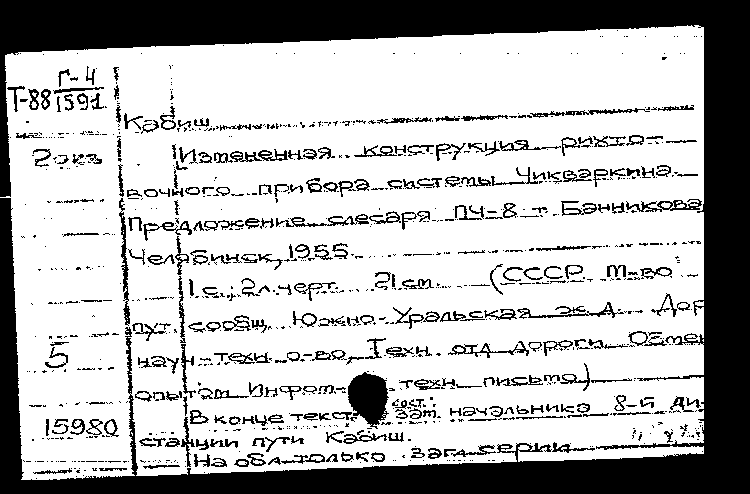 Г-4
Т-88 1591
Кабиш
2 экз
Измененная конструкция рихто-
вочного прибора системы Чикваркина.
Предложение слесаря ПЧ-8 т. Банникова
Челябинск, 1955
1 с.; 2 л. черт. 21 см. (СССР М-во
пут. сообщ Южно-Уральская ж. д. Дор
5
науч-техн о-во, Техн. отд дороги Обмен
опытом Информ- техн письмо)
сост.:
15980
В конце текст зам. начальника 8-й ди-
станции пути Кабиш.
На обл только загл серии